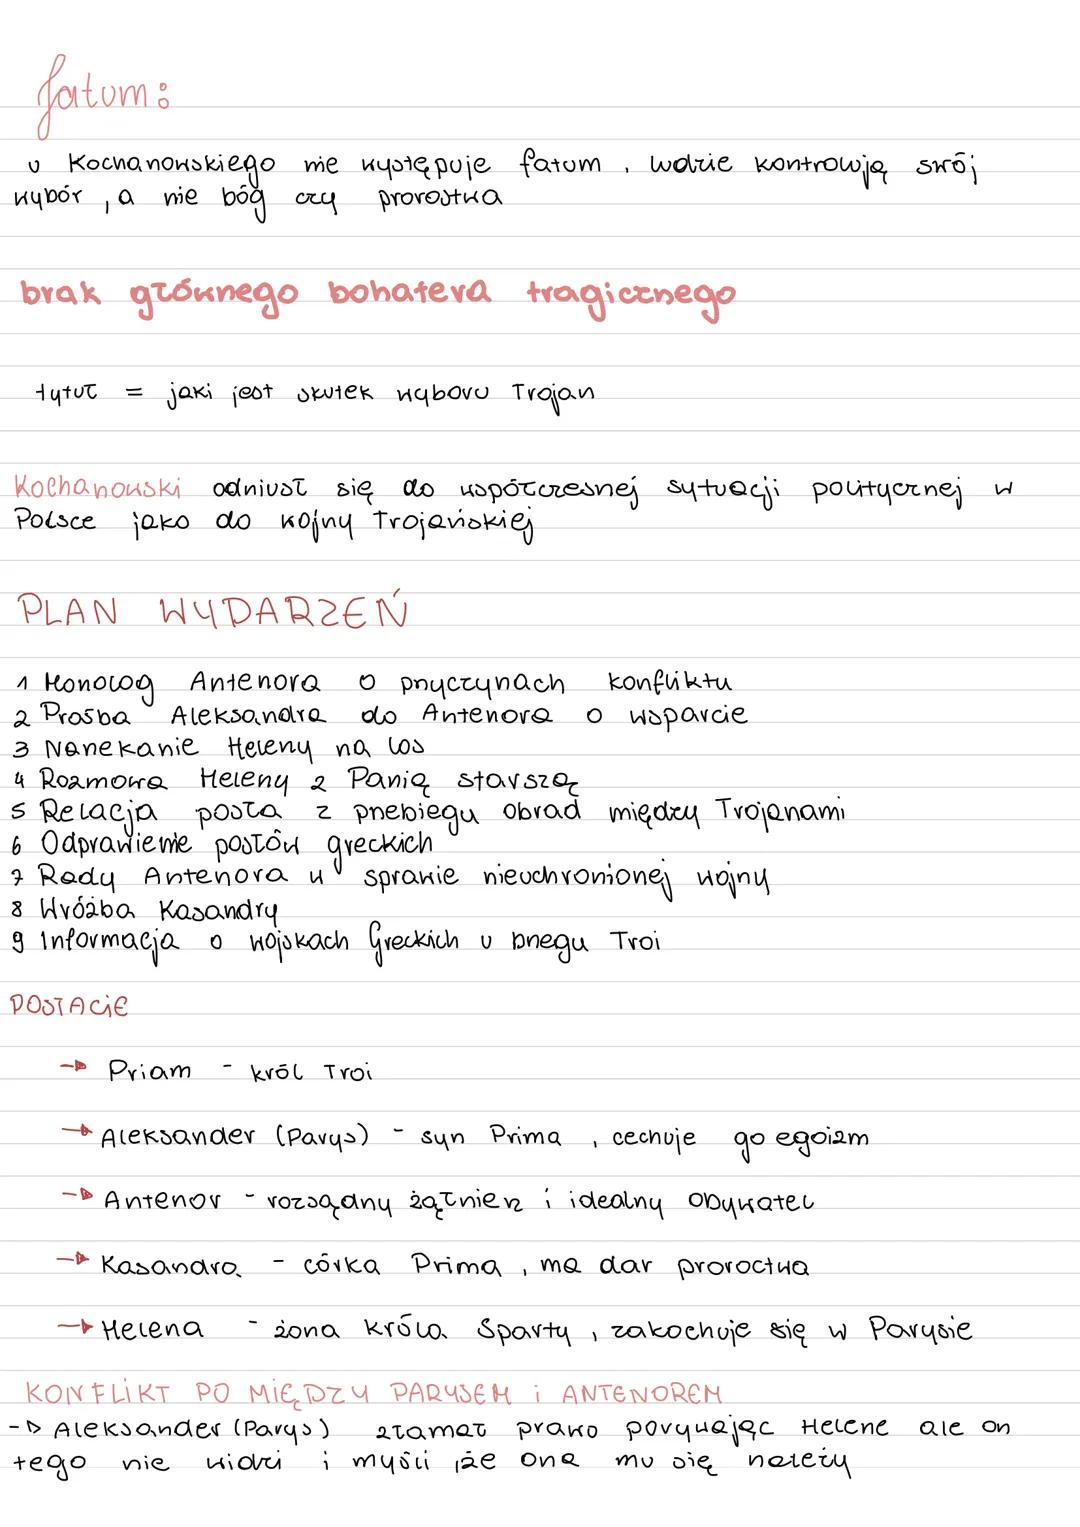 fatum:
u Kochanowskiego nie występuje fatum, ludzie kontrolują swój
wybór, a nie bóg czy proroctwa
brak głównego bohatera tragicznego
tytuł = jaki jest skutek wyboru Trojan
Kochanowski odniusł się do współczesnej sytuacji politycznej w
Polsce jako do wojny Trojańskiej
PLAN WYDARZEŃ
1 Monolog Antenora o przyczynach konfliktu
2 Prośba Aleksandra do Antenora o wsparcie
3 Narzekanie Heleny na los
4 Rozmowa Heleny z Panią starszą
5 Relacja posła z przebiegu obrad między Trojanami
6 Odprawienie posłów greckich
7 Rady Antenora w sprawie nieuchronionej wojny
8 Wróżba Kasandry
9 Informacja o wojskach Greckich u brzegu Troi
POSTACiE
→ Priam - król Troi
→ Aleksander (Parys) - syn Prima, cechuje go egoizm
→ Antenor - rozsądny żąłnierz i idealny obywatel
→ Kasandra - córka Prima, ma dar proroctwa
→ Helena - żona króla Sparty, zakochuje się w Parysie
KONFLiKT PO MiĘDZY PARYSEM i ANTENOREM
→ Aleksander (Parys) złamał prawo porywając Helene ale on
tego nie widzi i myśli, że ona mu się należy